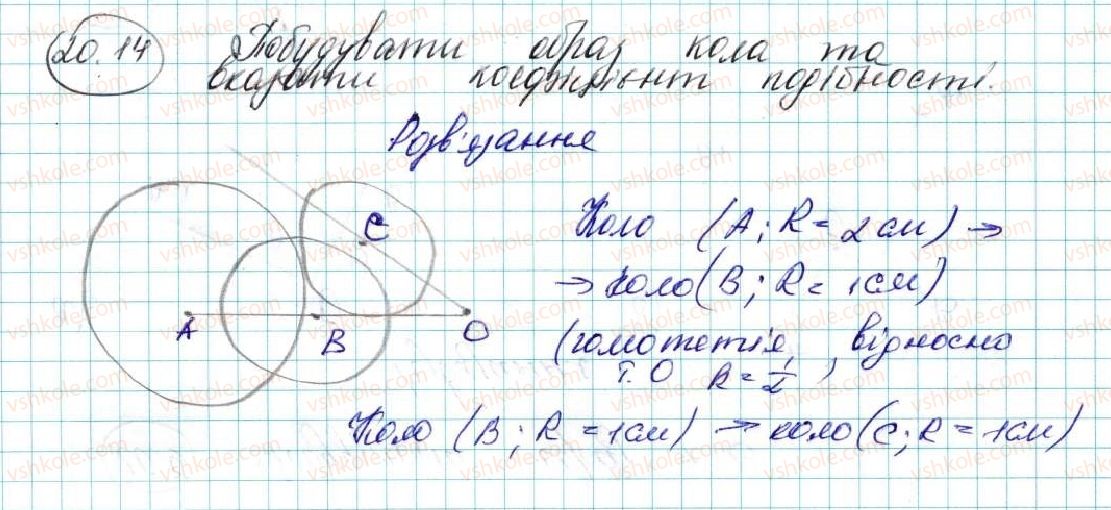 20.14 Побудувати образ кола та
вказати коефіцієнт подібності.
Розв'язання
Коло (A; R = 2 см) →
→ коло (B; R = 1 см)
(гомотетія, відносно
т. O R = 1/2 ,
C
A
B
O
Коло (B; R = 1 см) → коло (C; R = 1 см)
vshkole.com